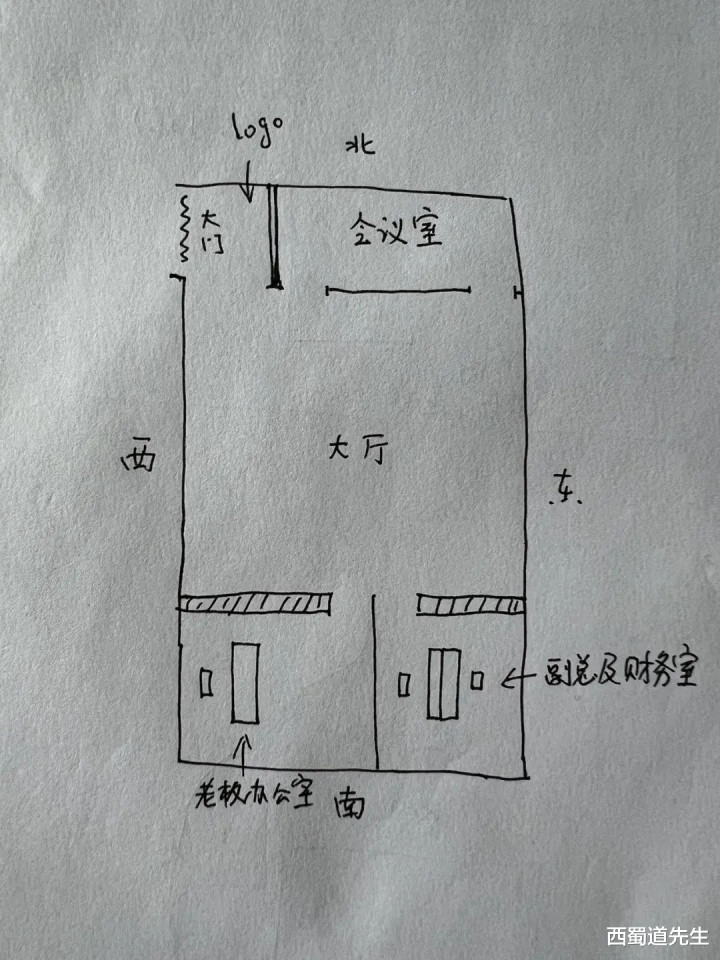 logo
北
大门
会议室
西
大厅
东
副总及财务室
老板办公室
南
西蜀道先生